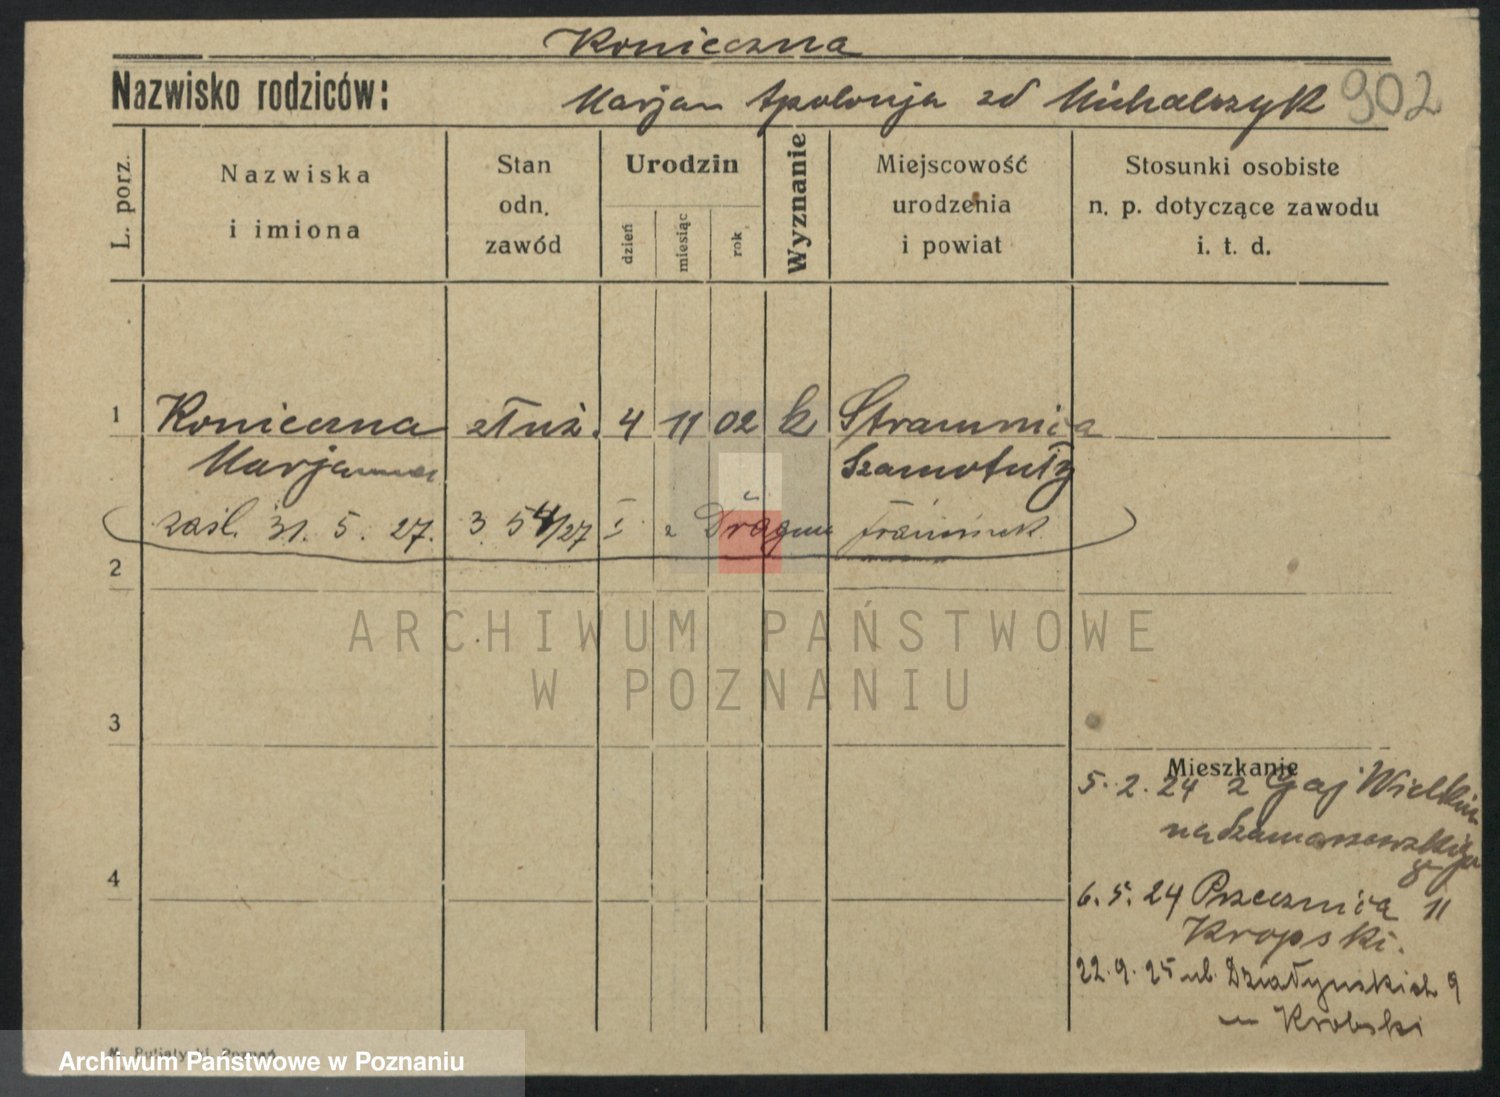 Konieczna
Nazwisko rodziców: Marjan Apolonja zd Michalczyk 902
L. porz.
Nazwiska
i imiona
Stan
odn.
zawód
Urodzin
dzień
miesiąc
rok
Wyznanie
Miejscowość
urodzenia
i powiat
Stosunki osobiste
n. p. dotyczące zawodu
i. t. d.
1 Konieczna służ. 4 11 02 k
Marjanna Szamotuły
zaśl. 31. 5. 27. 3. 54/27 z Franciszek
2
ARCHIWUM PAŃSTWOWE
W POZNANIU
3
Mieszkanie
5. 2. 24 z Gaj Wielki
4
6. 5. 24 Przecznica 11
Kropski.
22. 9. 25 ul. Działyńskich 9
Krobski
Archiwum Państwowe w Poznaniu